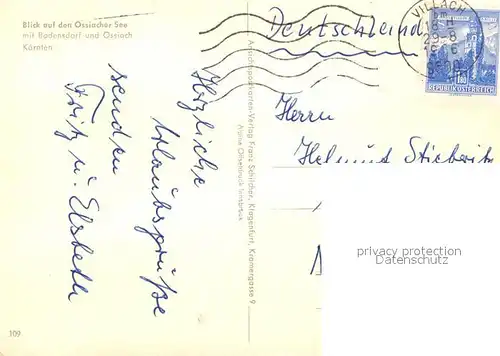 Blick auf den Ossiacher See
mit Bodensdorf und Ossiach
Kärnten
Herzliche
Urlaubsgrüße
senden
Fritz u. Elsbeth
Ansichtspostkarten-Verlag Franz Schilcher, Klagenfurt, Kramergasse 9
Alpina Offsetdruck Innsbruck
VILLACH
9500
REPUBLIK ÖSTERREICH
Deutschland
Herrn
Helmut
privacy protection
Datenschutz
109